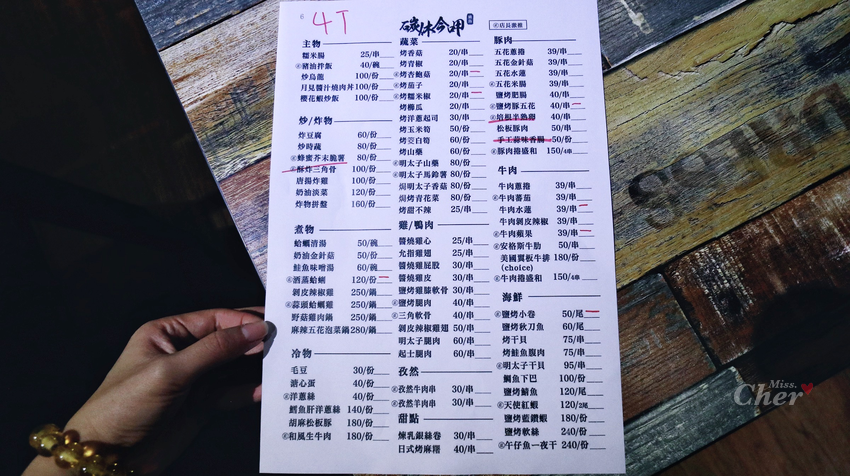 4T
碳佧今呷
店長激推
主物
糯米腸 25/串
豬油拌飯 40/碗
炒烏龍 100/份
月見醬汁燒肉丼 100/份
櫻花蝦炒飯 100/份
炒/炸物
炸豆腐 60/份
炒時蔬 80/份
蜂蜜芥末脆薯 80/份
酥炸三角骨 100/份
唐揚炸雞 100/份
奶油淡菜 120/份
炸物拼盤 160/份
煮物
蛤蠣清湯 50/碗
奶油金針菇 50/份
鮭魚味噌湯 60/碗
酒蒸蛤蠣 120/份
剝皮辣椒雞 250/鍋
蒜頭蛤蠣雞 250/鍋
野菇雞肉鍋 250/鍋
麻辣五花泡菜鍋 280/鍋
冷物
毛豆 30/份
溏心蛋 40/份
洋蔥絲 40/份
鱈魚肝洋蔥絲 140/份
胡麻松阪豚 180/份
和風生牛肉 180/份
蔬菜
烤香菇 20/串
烤青椒 20/串
烤杏鮑菇 20/串
烤茄子 20/串
烤糯米椒 20/串
烤櫛瓜 20/串
烤洋蔥起司 30/串
烤玉米筍 50/份
烤茭白筍 60/份
烤山藥 60/份
明太子山藥 80/份
明太子馬鈴薯 80/份
焗明太子香菇 80/份
焗烤青花菜 80/份
烤甜不辣 25/串
雞/鴨肉
醬燒雞心 25/串
允指雞翅 25/串
醬燒雞屁股 30/串
醬燒雞皮 30/串
鹽烤雞膝軟骨 30/串
鹽烤腿肉 40/串
三角軟骨 40/串
剝皮辣椒雞翅 50/串
明太子腿肉 60/串
起士腿肉 60/串
孜然
孜然牛肉串 30/串
孜然羊肉串 30/串
甜點
煉乳銀絲卷 30/串
日式烤麻糬 40/串
豚肉
五花蔥捲 39/串
五花金針菇 39/串
五花水蓮 39/串
五花米腸 39/串
鹽烤肥腸 40/串
鹽烤豚五花 40/串
培根半熟蛋 40/串
松板豚肉 50/串
手工蒜味香腸 50/份
豚肉捲盛和 150/4串
牛肉
牛肉蔥捲 39/串
牛肉蕃茄 39/串
牛肉水蓮 39/串
牛肉剝皮辣椒 39/串
牛肉蘋果 39/串
安格斯牛肋 50/串
美國翼板牛排 180/份
(choice)
牛肉捲盛和 150/4串
海鮮
鹽烤小卷 50/尾
鹽烤秋刀魚 60/尾
烤干貝 75/串
烤鮭魚腹肉 75/串
明太子干貝 95/串
鯛魚下巴 100/份
鹽烤鯖魚 120/尾
天使紅蝦 120/2尾
鹽烤藍鑽蝦 180/份
鹽烤軟絲 240/份
午仔魚一夜干 240/份
Miss.
Cher